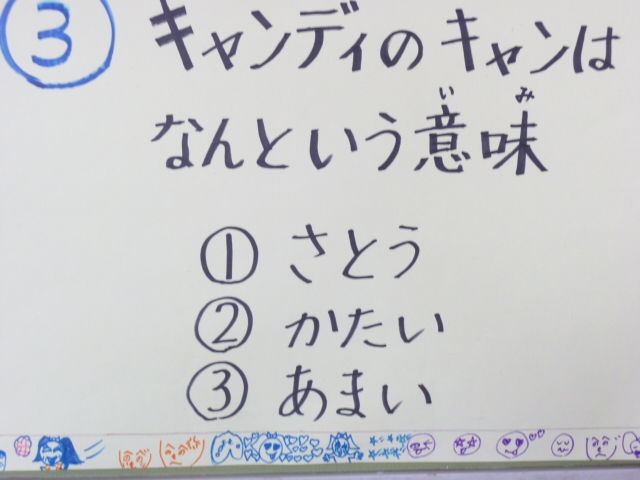 ③ キャンディのキャンは
なんという意味
いみ
① さとう
② かたい
③ あまい